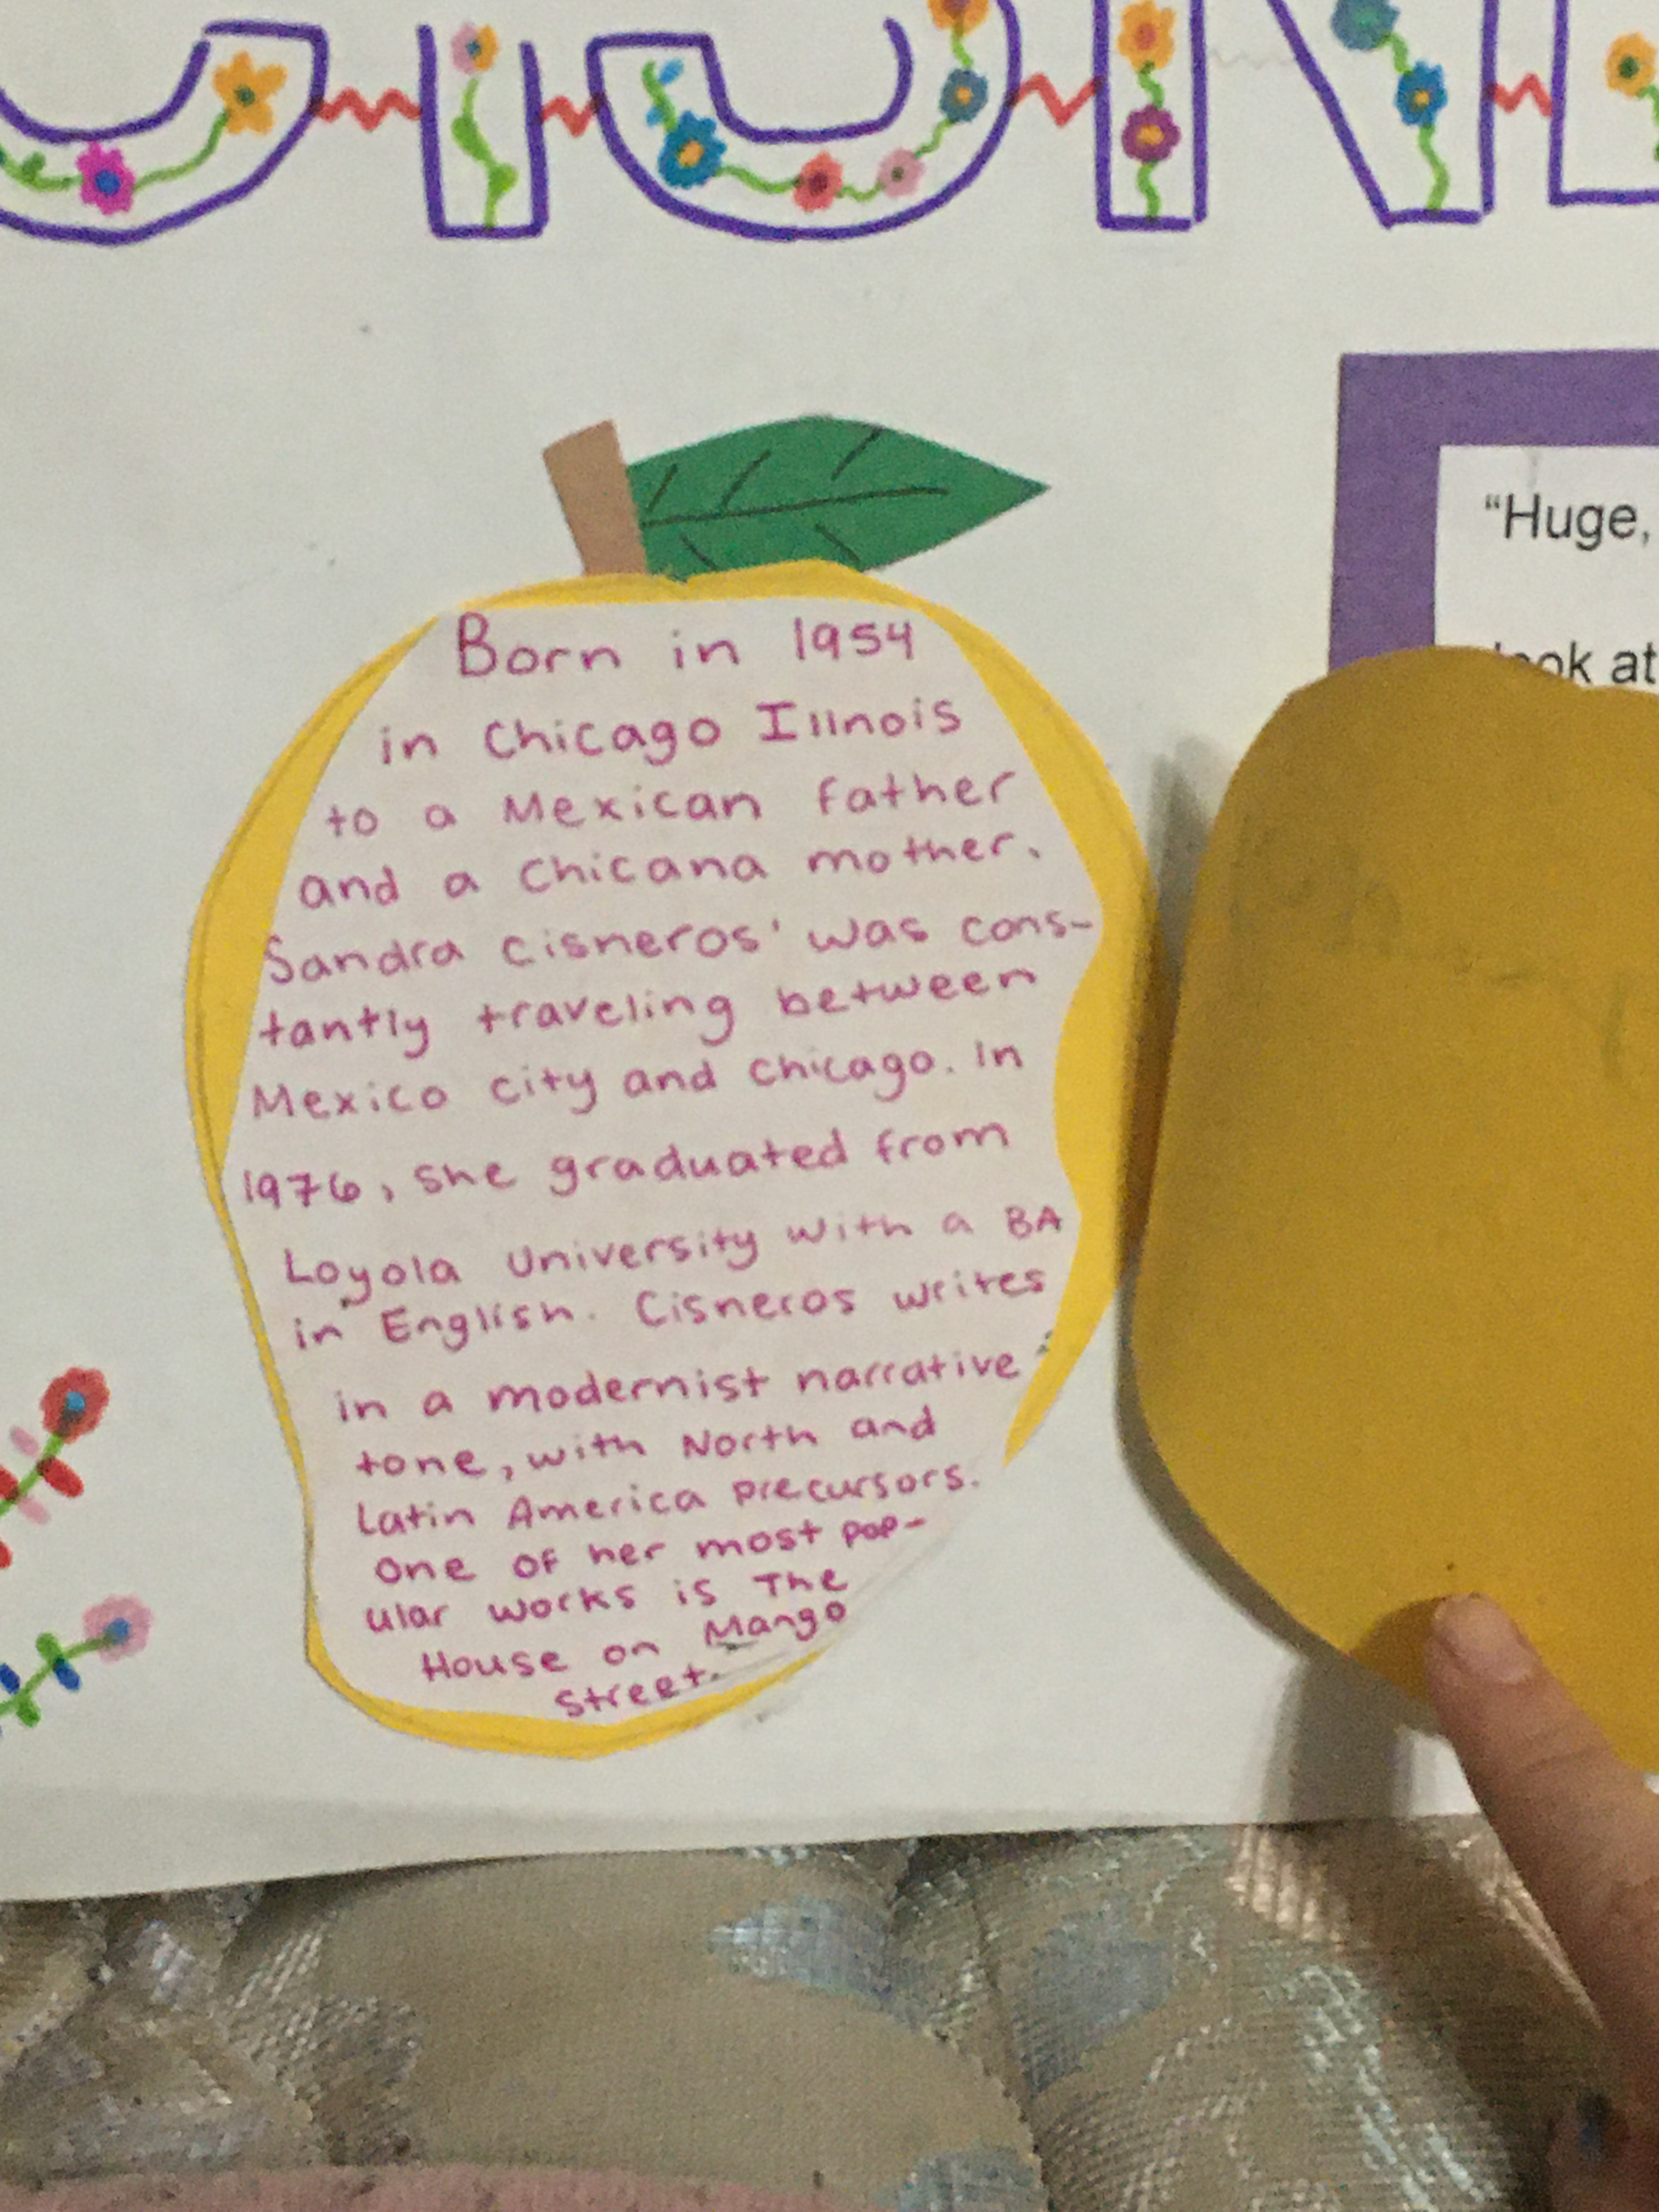 Born in 1954
in Chicago Illnois
to a Mexican father
and a Chicana mother.
Sandra Cisneros' was cons-
tantly traveling between
Mexico city and Chicago. In
1976, she graduated from
Loyola University with a BA
in English. Cisneros writes
in a modernist narrative
tone, with North and
Latin America precursors.
One of her most pop-
ular works is The
House on Mango
Street.
"Huge,
at